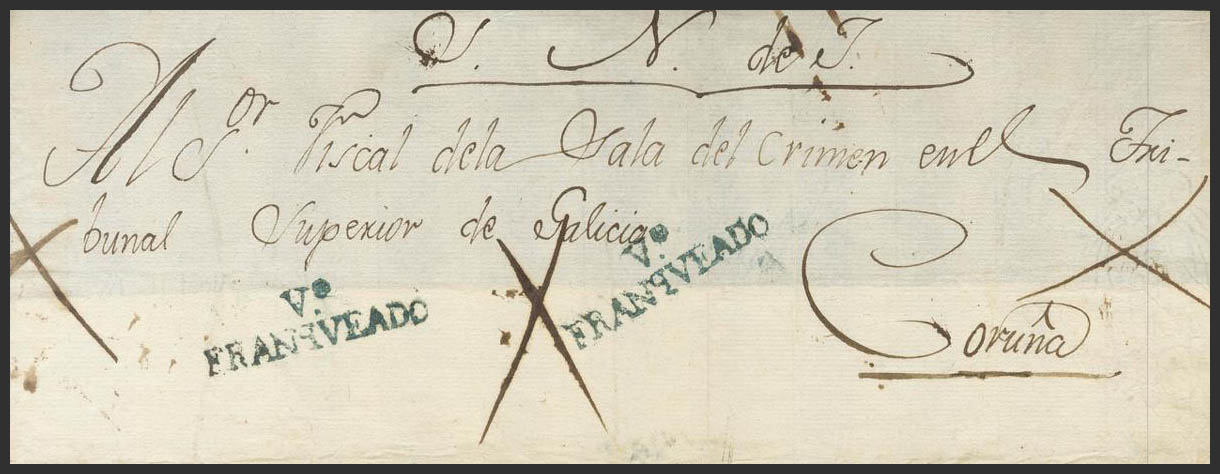 S. N. de J.
Al S.or Fiscal dela Sala del Crimen en el Tri-
bunal Superior de Galicia
Coruña
Vº
FRANQVEADO
Vº
FRANQVEADO